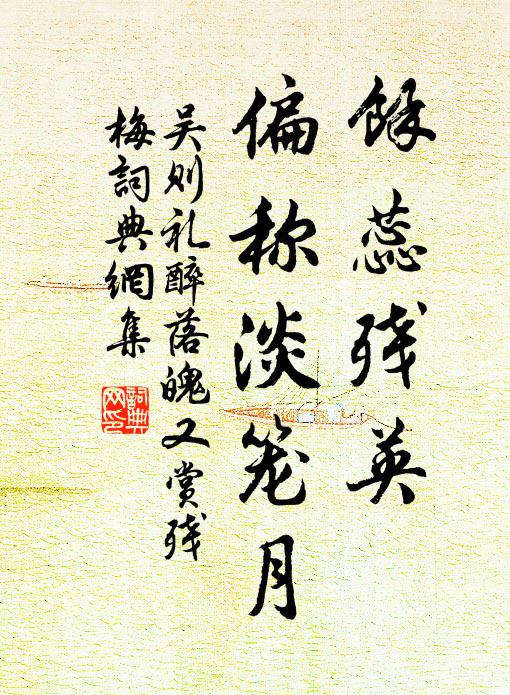 馀蕊残英
偏称淡笼月
吴则礼醉落魄又赏残
梅詞典網集
詞典
网印